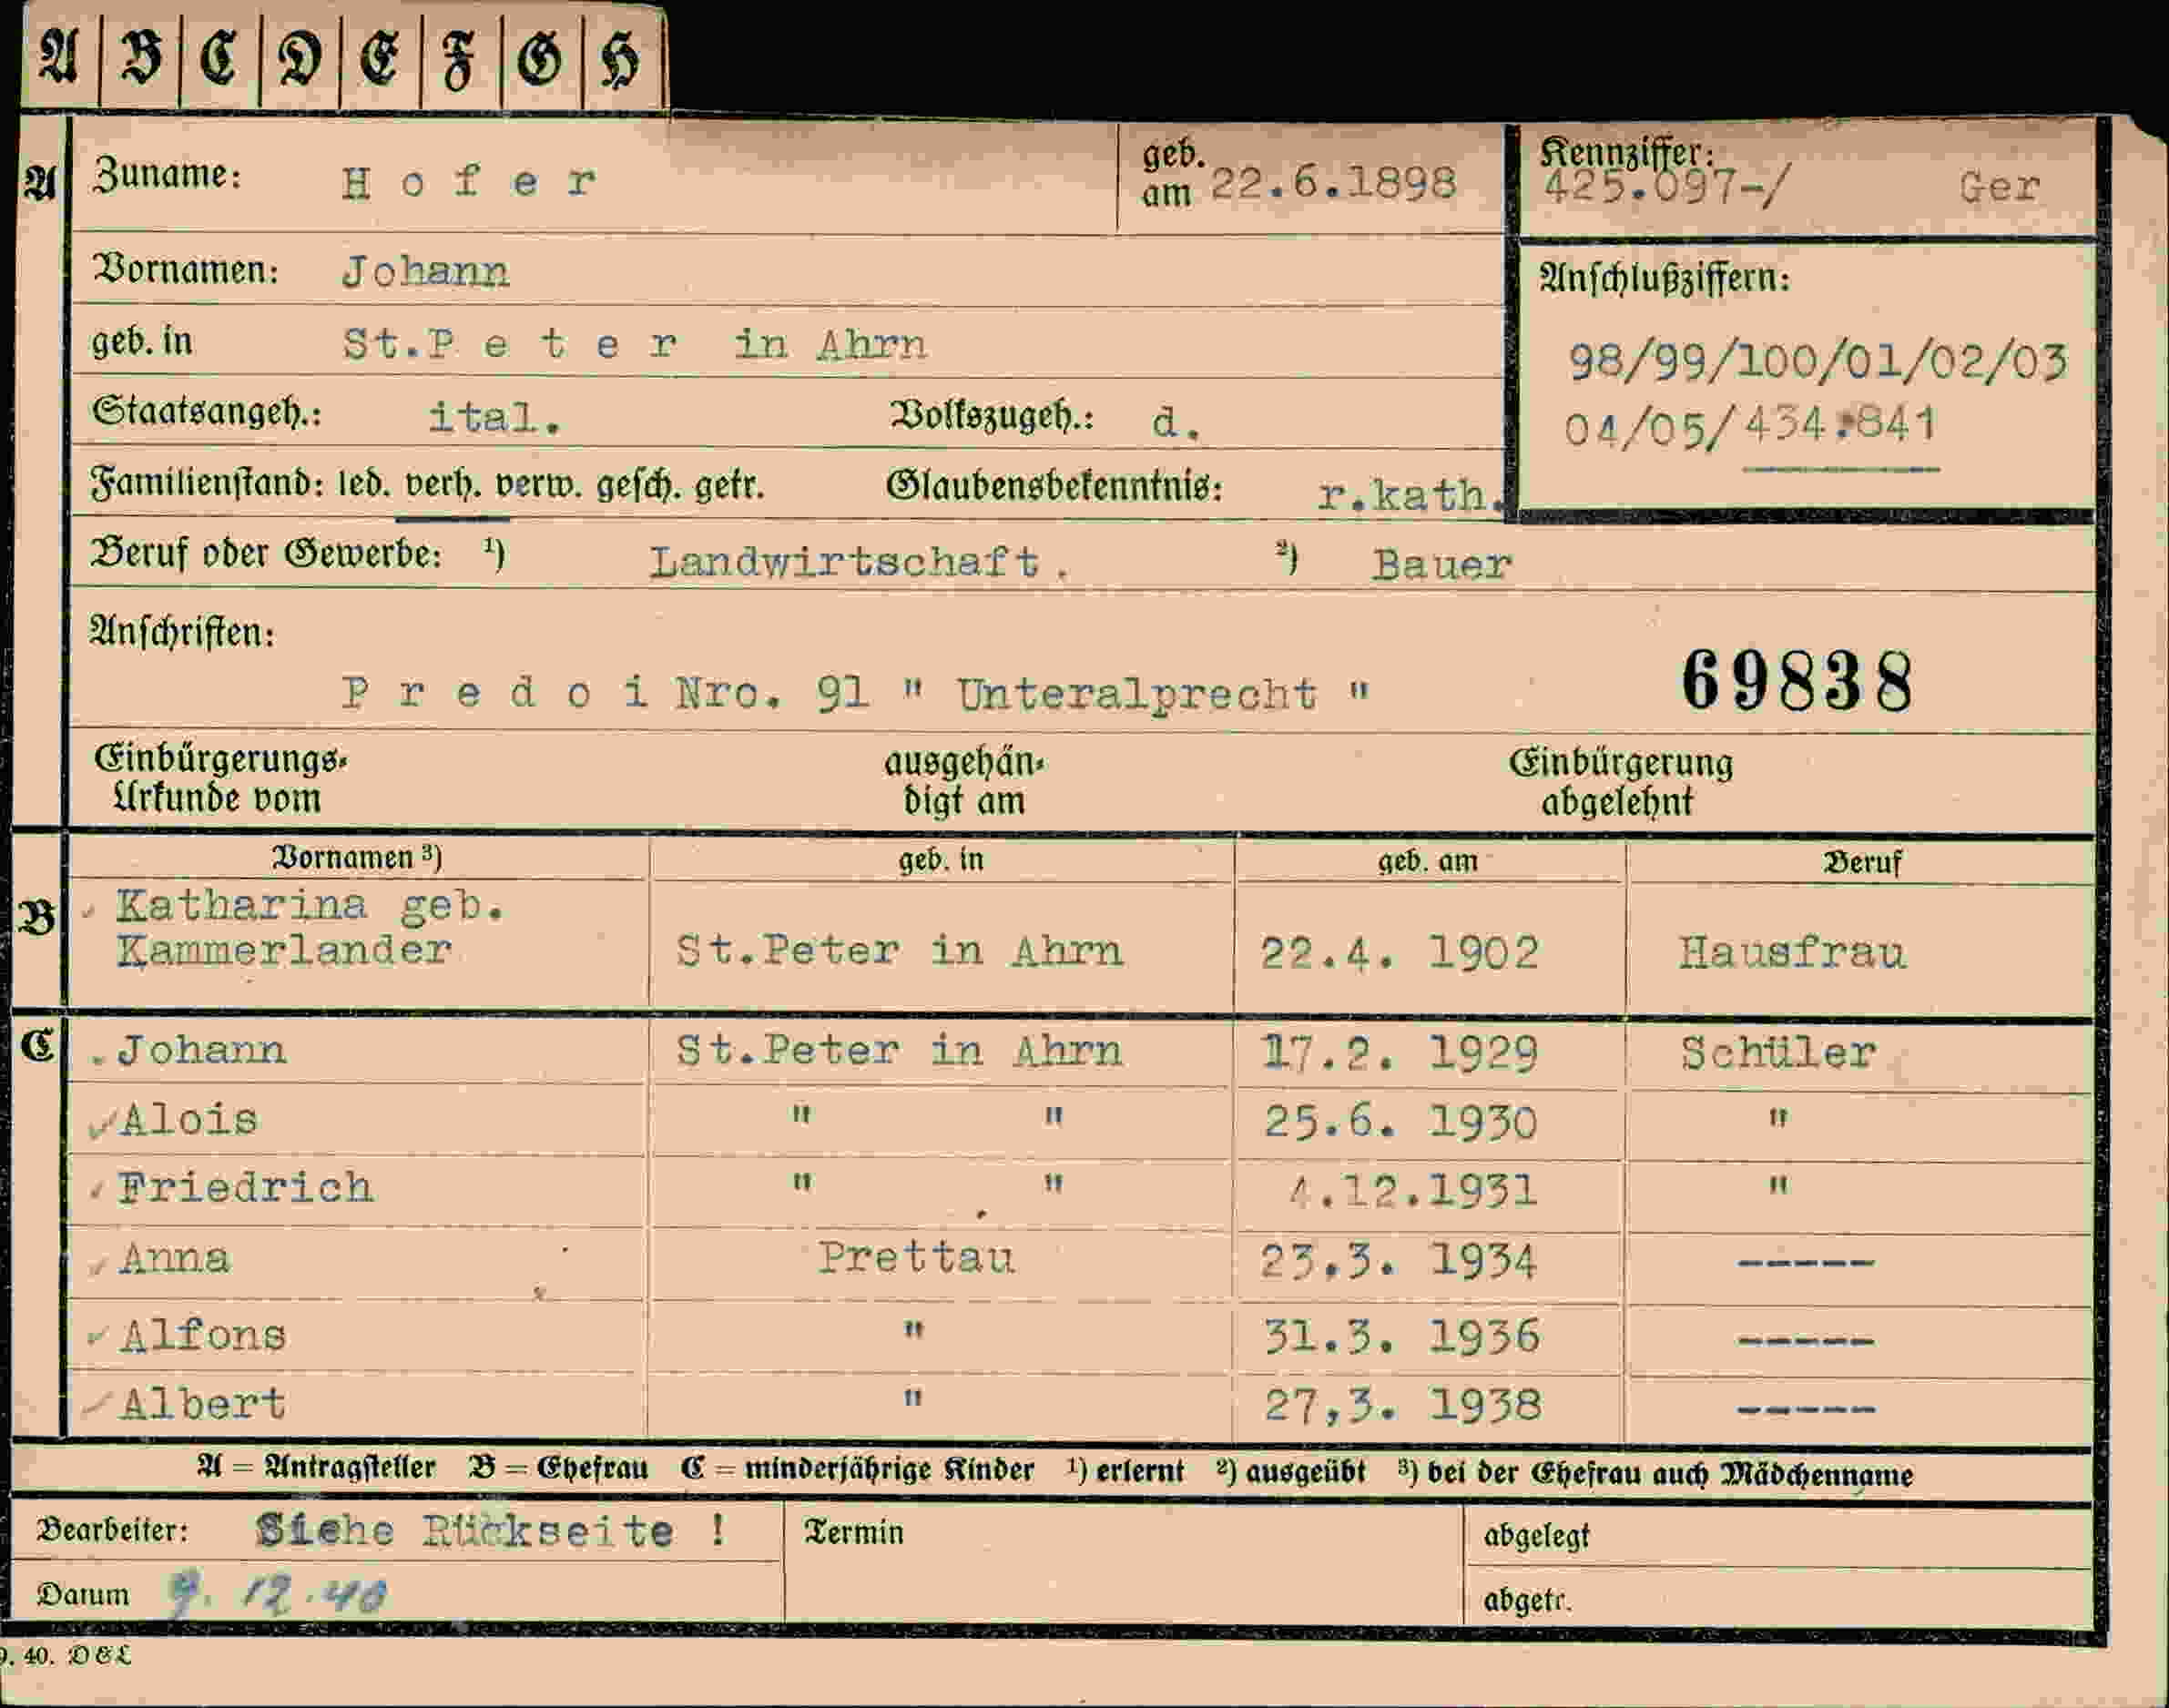 A B C D E F G H
A Zuname: Hofer geb. am 22.6.1898 Kennziffer: 425.097-/ Ger
Vornamen: Johann Anschlußziffern:
geb. in St.Peter in Ahrn 98/99/100/01/02/03
Staatsangeh.: ital. Volkszugeh.: d. 04/05/434.841
Familienstand: led. verh. verw. gesch. getr. Glaubensbekenntnis: r.kath.
Beruf oder Gewerbe: 1) Landwirtschaft. 2) Bauer
Anschriften:
Predoi Nro. 91 " Unteralprecht " 69838
Einbürgerungs- ausgehän- Einbürgerung
Urkunde vom digt am abgelehnt
Vornamen 3) geb. in geb. am Beruf
B Katharina geb.
Kammerlander St.Peter in Ahrn 22.4. 1902 Hausfrau
C Johann St.Peter in Ahrn 17.2. 1929 Schüler
Alois " " 25.6. 1930 "
Friedrich " " 4.12.1931 "
Anna Prettau 23.3. 1934 -----
Alfons " 31.3. 1936 -----
Albert " 27,3. 1938 -----
A = Antragsteller B = Ehefrau C = minderjährige Kinder 1) erlernt 2) ausgeübt 3) bei der Ehefrau auch Mädchenname
Bearbeiter: Siehe Rückseite ! Termin abgelegt
Datum 9. 12. 40 abgetr.
9. 40. DEL